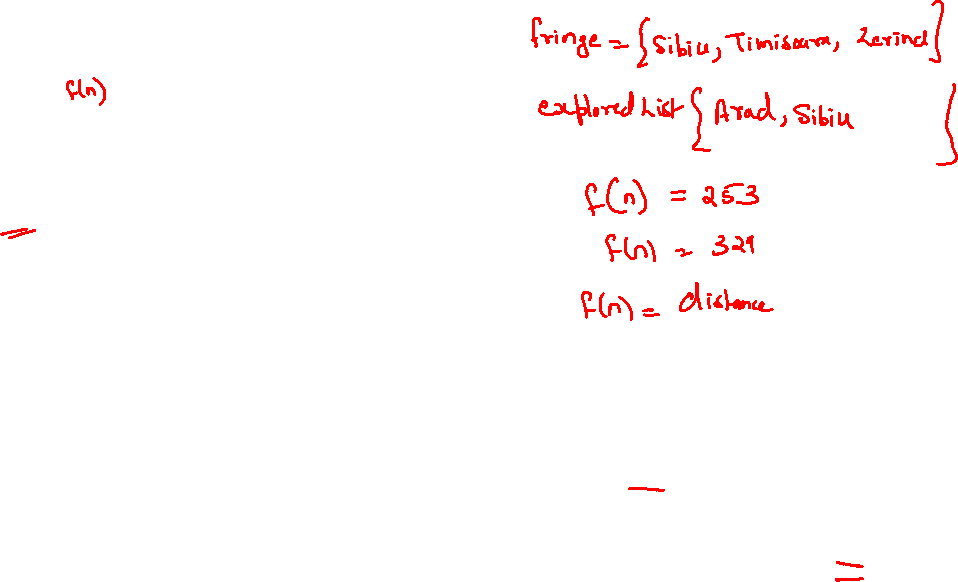 fringe = {Sibiu, Timisoara, Zerind}
f(n)
explored List { Arad, Sibiu }
f(n) = 253
f(n) = 329
f(n) = distance